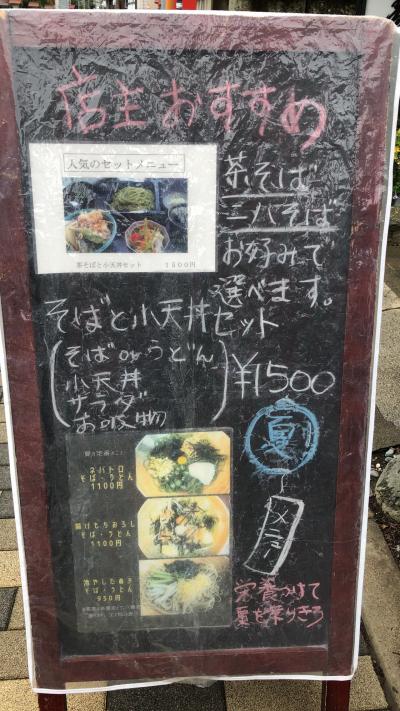 店主おすすめ
人気のセットメニュー
茶そばと小天丼セット 1500円
茶そば
二八そば
お好みで
選べます。
そばと小天丼セット
そば or うどん
小天丼
サラダ
お吸物
¥1500
夏
メニュー
ネバトロ
そば・うどん
1100円
揚げもちおろし
そば・うどん
1100円
冷やしたぬき
そば・うどん
950円
栄養つけて
夏を乗りきろ